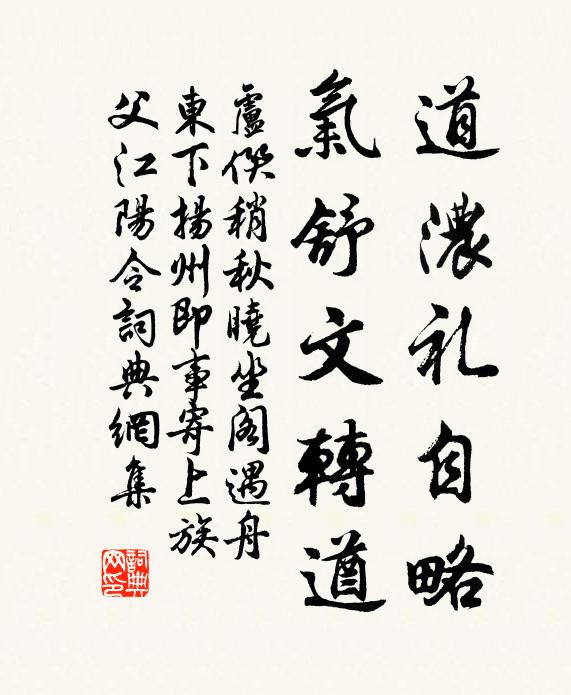 道濃礼自略
氣舒文轉遒
盧僎稍秋曉坐閣遇舟
東下揚州即事寄上族
父江陽令詞典網集
詞典网印